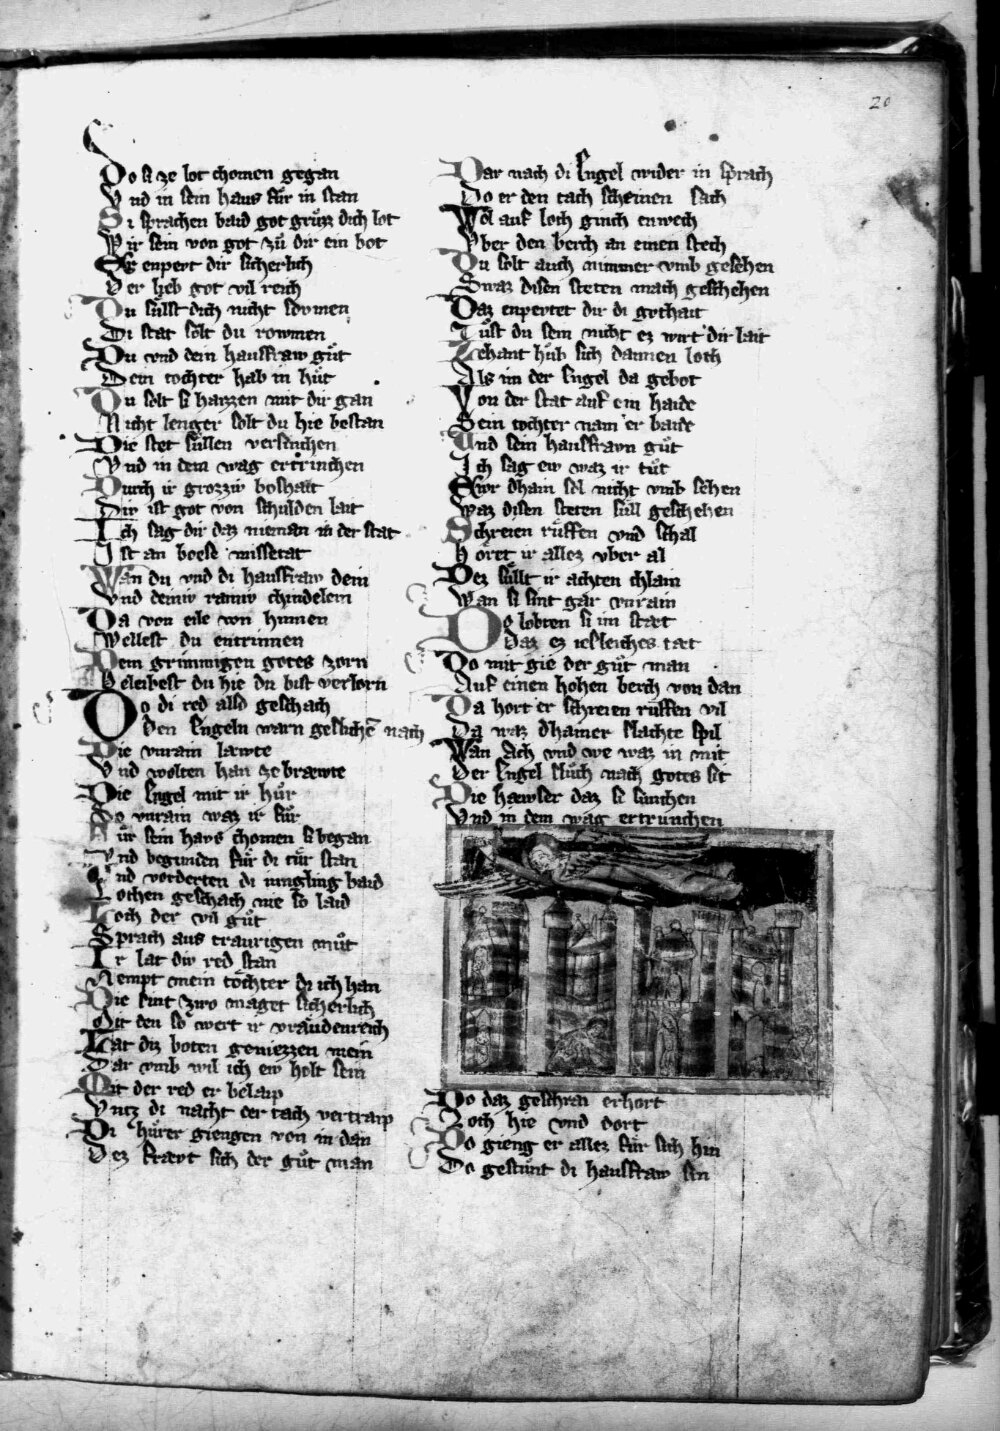 20
Do si ze lot chomen gegan
Vnd in sein haus fuͤr in stan
Si sprachen baid got gruͤzz dich lot
Wir sein von got zuͦ dir ein bot
Er enpevt dir sicherlich
Der lieb got vil reich
Du suͤllst dich nicht sovmen
Di stat solt du rovmen
Du vnd dein hausfraw guͦt
Dein tochter hab in huͦt
Du solt si haizzen mit dir gan
Nicht lenger solt du hie bestan
Die stet suͤllen versinchen
Vnd in dem wag ertrinchen
Durch ir grozziv boshait
Div ist got von schulden lait
Ich sag dir daz nieman in der stat
Ist an boese missetat
Wan du vnd di hausfraw dein
Vnd deiniv rainiv chindelein
Da von eile von hinnen
Wellest du entrinnen
Dem grimmigen gotes zorn
Beleibest du hie du bist verlorn
Do di red allsd geschach
Den Engeln warn geslichē nach
Die vnrain laewte
Vnd wolten han ze braewte
Die Engel mit ir huͦr
So vnrain waz ir fuͦr
Fuͤr sein havs chomen si began
Vnd begunden fuͤr di tuͤr stan
Vnd vorderten di iungling baid
Lochen geschach nie so laid
Loch der vil guͦt
Sprach aus traurigen muͦt
Ir lat div red stan
Nempt mein toͤchter di ich han
Die sint zwo maget sicherlich
Mit den so wert ir vraͤudenreich
Lat diz boten geniezzen mein
Dar vmb wil ich ew holt sein
Mit der red er belaip
Vntz di nacht der tach vertraip
Di huͦrer giengen von in dan
Dez fraevt sich der guͦt man
Dar nach di Engel wider in sprach
Do er den tach scheinen sach
Wol auf loch ginch enwech
Vber den berch an einen stech
Du solt auch nimmer vmb gesehen
Swaz disen steten mach geschehen
Daz enpevtet dir di gothait
Tuͦst du sein nicht ez wirt dir lait
Zehant huͦb sich dannen loth
Als im der Engel da gebot
Von der stat auf ein haide
Sein tochter nam er baide
Vnd sein hausfrawn guͦt
Ich sag ew waz ir tuͦt
Ewr dhain sol nicht vmb sehen
Waz disen steten suͤll geschehen
Schreien ruͤffen vnd schal
Horet ir allez vber al
Dez suͤllt ir achten chlain
Wan si sint gar vnrain
Do lobten si im staet
Daz ez iesleiches taet
Do mit gie der guͦt man
Auf einen hohen berch von dan
Da hort er schreien ruͤffen vil
Da waz dhainer slachte spil
Wan Ach vnd we waz in mit
Der Engel sluͦch nach gotes sit
Die haewser daz si sunchen
Vnd in dem wag ertrunchen
Do daz geschrai erhort
Loch hie vnd dort
Do gieng er allez fuͤr sich hin
Do gestuͦnt di hausfraw sin